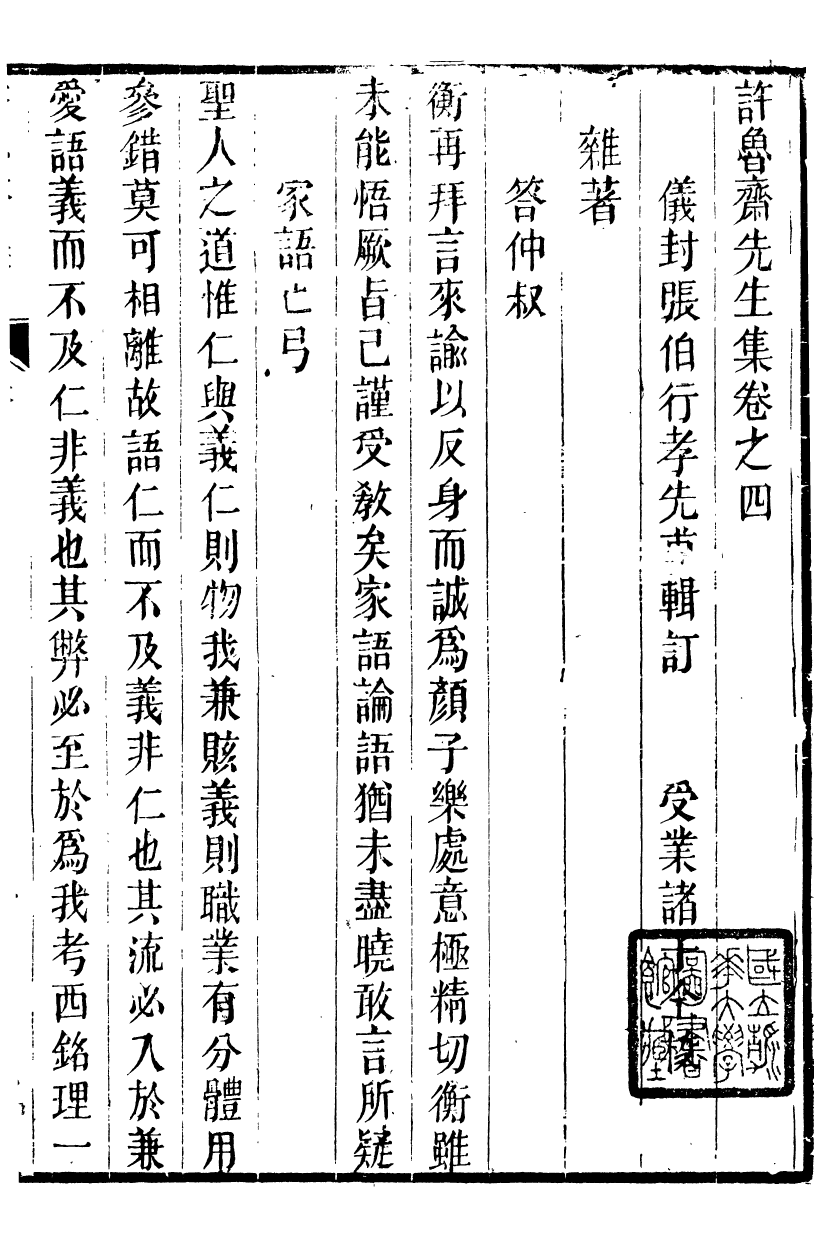 許魯齋先生集卷之四
儀封張伯行孝先甫輯訂　受業諸子仝
雜著
答仲叔
衡再拜言來諭以反身而誠爲顏子樂處意極精切衡雖
未能悟厥旨已謹受教矣家語論語猶未盡曉敢言所疑
家語亡弓
聖人之道惟仁與義仁則物我兼賅義則職業有分體用
參錯莫可相離故語仁而不及義非仁也其流必入於兼
愛語義而不及仁非義也其弊必至於爲我考西銘理一
國立清華大學圖書館藏